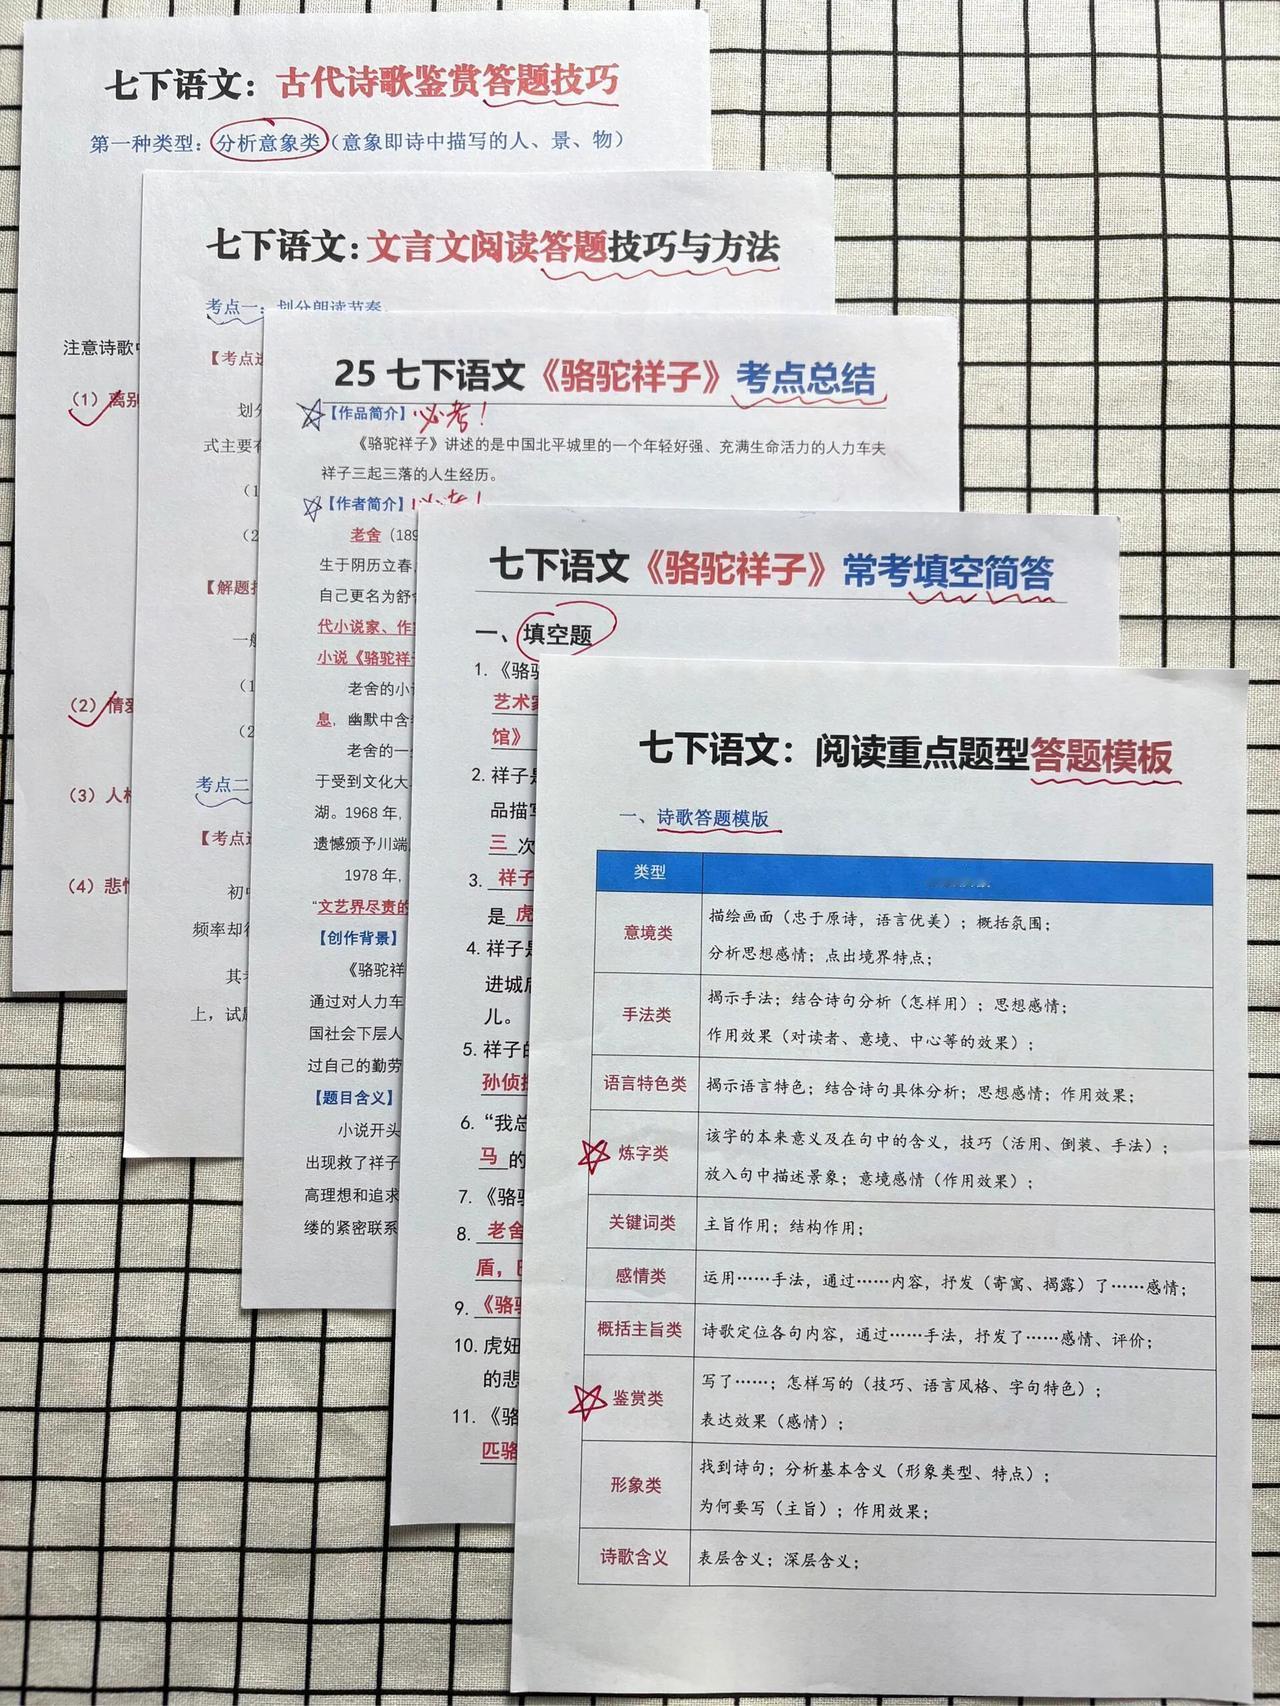 七下语文：古代诗歌鉴赏答题技巧
第一种类型：分析意象类（意象即诗中描写的人、景、物）
注意诗歌
（1）离别
（2）情爱
（3）人
（4）悲
七下语文：文言文阅读答题技巧与方法
考点一：划分朗读节奏
【考点
划分
式主要有
（1
（2
【解题
一般
（1
（2
考点二
【考点
初中
频率却
其
上，试题
25 七下语文《骆驼祥子》考点总结
【作品简介】必考！
《骆驼祥子》讲述的是中国北平城里的一个年轻好强、充满生命活力的人力车夫
祥子三起三落的人生经历。
【作者简介】必考！
老舍（189
生于阴历立春
自己更名为舒舍
代小说家、作
小说《骆驼祥
老舍的小
息，幽默中含
老舍的一
于受到文化大
湖。1968 年，
遗憾颁予川端
1978 年，
“文艺界尽责的
【创作背景】
《骆驼祥
通过对人力车
国社会下层人
过自己的勤劳
【题目含义】
小说开头
出现救了祥子
高理想和追求
缕的紧密联系
七下语文《骆驼祥子》常考填空简答
一、填空题
1. 《骆
艺术家
馆》
2. 祥子是
品描写
三 次
3. 祥子
是 虎
4. 祥子是
进城后
儿。
5. 祥子的
孙侦探
6. “我总
马 的
7. 《骆驼
8. 老舍
盾，
9. 《骆驼
10. 虎妞
的悲
11. 《骆
匹骆
七下语文：阅读重点题型答题模板
一、诗歌答题模版
类型
意境类
描绘画面（忠于原诗，语言优美）；概括氛围；
分析思想感情；点出境界特点；
手法类
揭示手法；结合诗句分析（怎样用）；思想感情；
作用效果（对读者、意境、中心等的效果）；
语言特色类 揭示语言特色；结合诗句具体分析；思想感情；作用效果；
炼字类
该字的本来意义及在句中的含义，技巧（活用、倒装、手法）；
放入句中描述景象；意境感情（作用效果）；
关键词类 主旨作用；结构作用；
感情类 运用……手法，通过……内容，抒发（寄寓、揭露）了……感情；
概括主旨类 诗歌定位各句内容，通过……手法，抒发了……感情、评价；
鉴赏类
写了……；怎样写的（技巧、语言风格、字句特色）；
表达效果（感情）；
形象类
找到诗句；分析基本含义（形象类型、特点）；
为何要写（主旨）；作用效果；
诗歌含义 表层含义；深层含义；